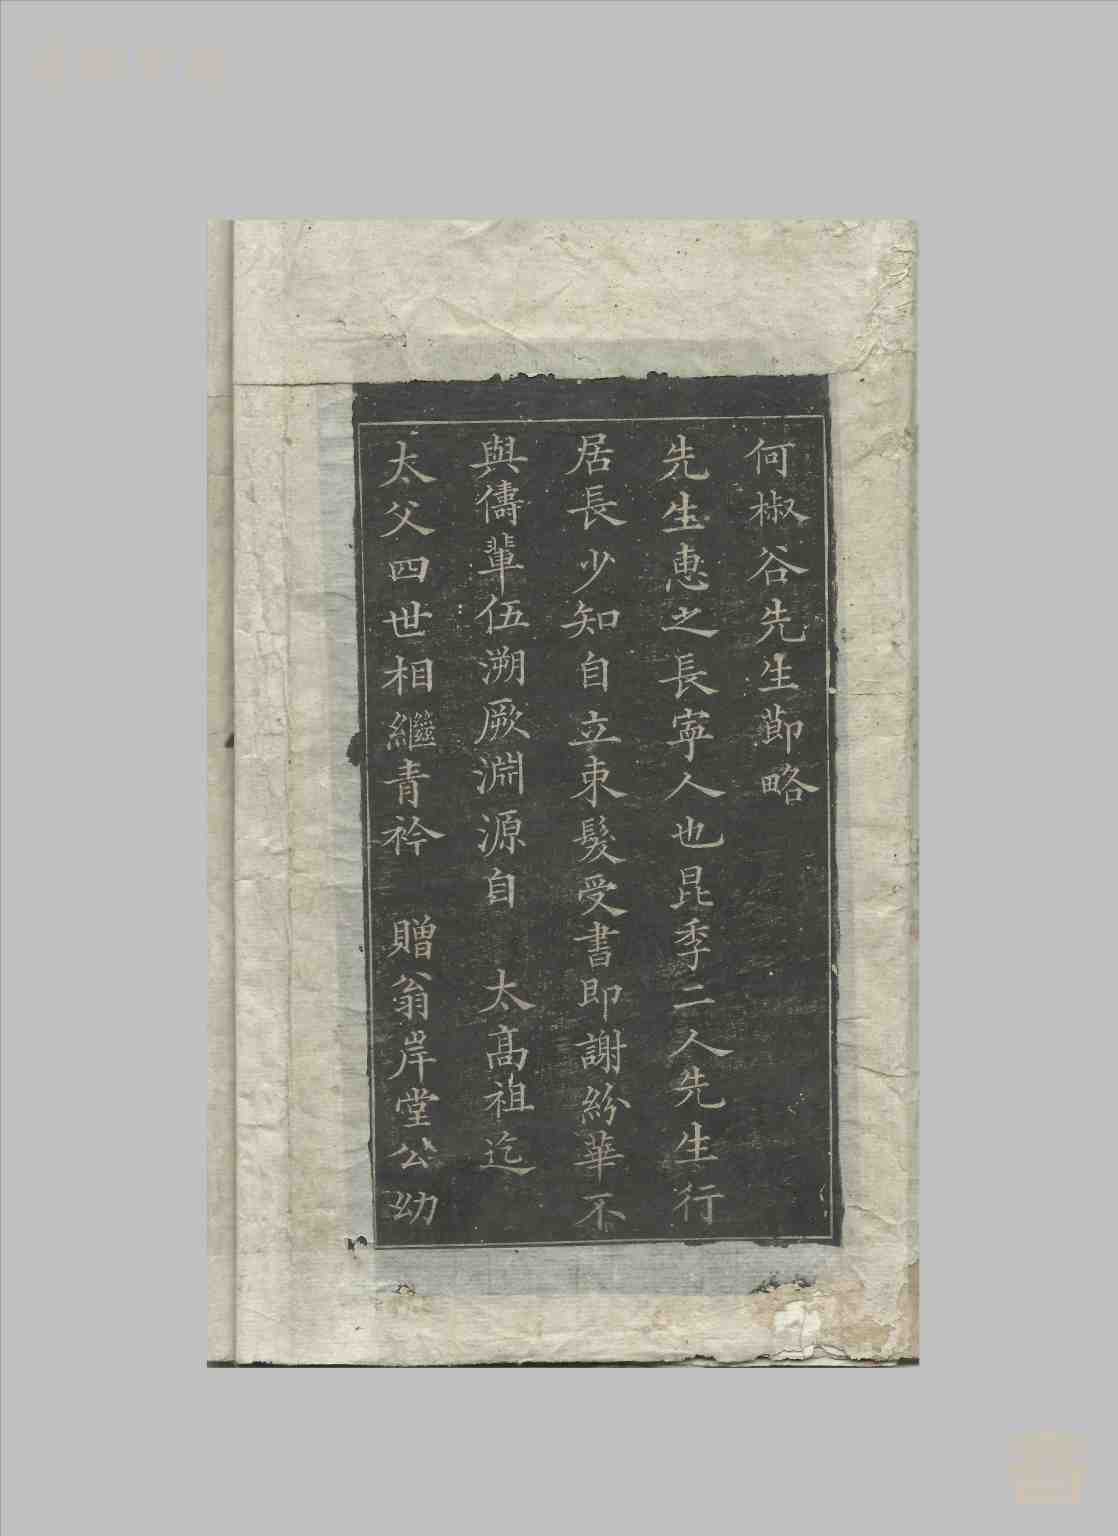 何椒谷先生節略
先生惠之長寧人也昆季二人先生行
居長少知自立束髮受書即謝紛華不
與儔輩伍溯厥淵源自　太高祖迄
太父四世相繼青衿　贈翁岸堂公幼